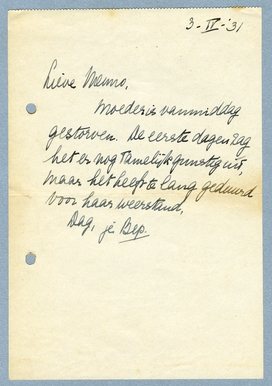 3-IV-'31
Lieve Menno,
Moeder is vanmiddag
gestorven. De eerste dagen zag
het er nog tamelijk gunstig uit,
maar het heeft te lang geduurd
voor haar weerstand,
Dag, je Bep.